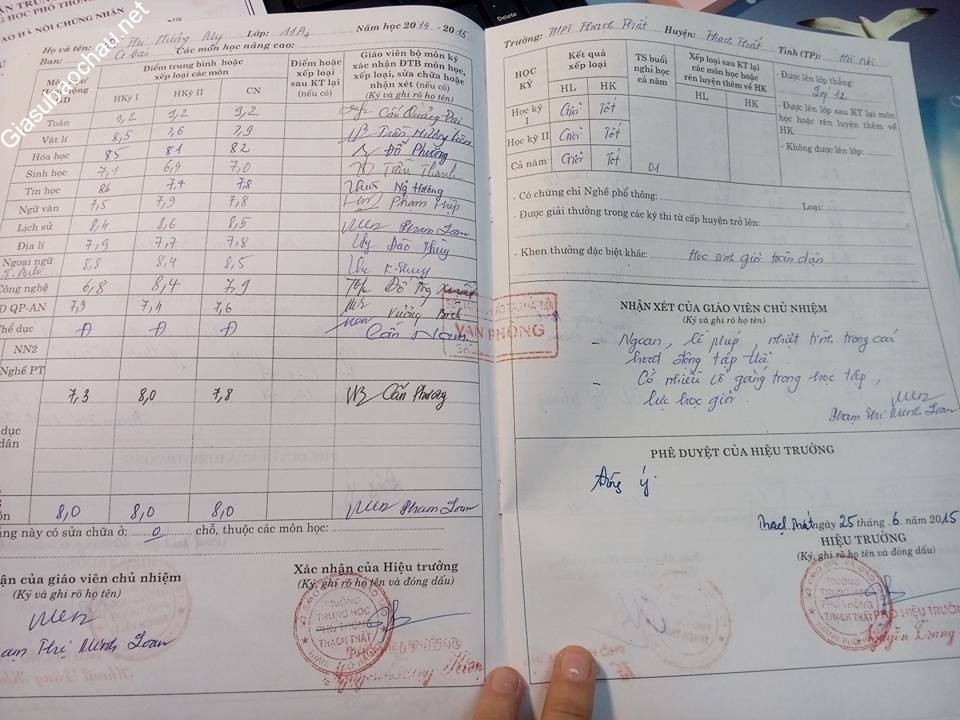 Giasubaochau.net
ÁN TRUNG
HỌC PHỔ THÔNG
ÀO HÀ NỘI CHỨNG NHẬN
Họ và tên: Thị Hương My Lớp: 11A4 Năm học 2014 - 2015
Ban: Cơ bản Các môn học nâng cao:
Điểm trung bình hoặc xếp loại các môn
Điểm hoặc xếp loại sau KT lại (nếu có)
Giáo viên bộ môn ký xác nhận ĐTB môn học, xếp loại, sửa chữa hoặc nhận xét (nếu có)
(Ký và ghi rõ họ tên)
HKỳ I HKỳ II CN
Toán 9,2 9,2 9,2 Cấn Quang Đại
Vật lí 8,5 7,6 7,9 Trần
Hóa học 85 81 82 Đỗ Phượng
Sinh học 7,1 6,9 7,0 Trần Thanh
Tin học 86 7,4 7,8 Ng Hương
Ngữ văn 7,5 7,9 7,8 Phạm Hiệp
Lịch sử 8,4 8,6 8,5 Phạm Loan
Địa lí 7,9 7,7 7,8 Đào Thùy
Ngoại ngữ 8,8 8,4 8,5 K. Thuy
Công nghệ 6,8 8,4 7,9 Đỗ Thị Xuân
D QP-AN 7,9 7,4 7,6 Vương
hể dục Đ Đ Đ Cấn Nam
NN2
Nghề PT
7,3 8,0 7,8 Cấn Phương
dục
dân
ôn 8,0 8,0 8,0 Phạm Loan
ang này có sửa chữa ở: 0 chỗ, thuộc các môn học:
ận của giáo viên chủ nhiệm
(Ký và ghi rõ họ tên)
ạm Thị Minh Loan
Xác nhận của Hiệu trưởng
(Ký, ghi rõ họ tên và đóng dấu)
TRƯỜNG
TRUNG HỌC
PHỔ THÔNG
THẠCH THẤT
VĂN PHÒNG
Trường: THPT Thạch Thất Huyện: Thạch Thất Tỉnh (TP): Hà Nội
HỌC KỲ
Kết quả xếp loại
TS buổi nghỉ học cả năm
Xếp loại sau KT lại các môn học hoặc rèn luyện thêm về HK
HL HK HL HK
Học kỳ I Giỏi Tốt
Học kỳ II Giỏi Tốt
Cả năm Giỏi Tốt 01
- Được lên lớp thẳng:
Lớp 12
- Được lên lớp sau KT lại môn học hoặc rèn luyện thêm về HK:
- Không được lên lớp:
- Có chứng chỉ Nghề phổ thông: Loại:
- Được giải thưởng trong các kỳ thi từ cấp huyện trở lên:
- Khen thưởng đặc biệt khác: Học sinh giỏi toàn diện
NHẬN XÉT CỦA GIÁO VIÊN CHỦ NHIỆM
(Ký và ghi rõ họ tên)
- Ngoan, lễ phép, nhiệt tình trong các
hoạt động tập thể
- Có nhiều cố gắng trong học tập,
lực học giỏi
Phạm Thị Minh Loan
PHÊ DUYỆT CỦA HIỆU TRƯỞNG
Đồng ý
Thạch Thất ngày 25 tháng 6 năm 2015
HIỆU TRƯỞNG
(Ký, ghi rõ họ tên và đóng dấu)
TRƯỜNG
TRUNG HỌC
PHỔ THÔNG
THẠCH THẤT
PHÓ HIỆU TRƯỞNG